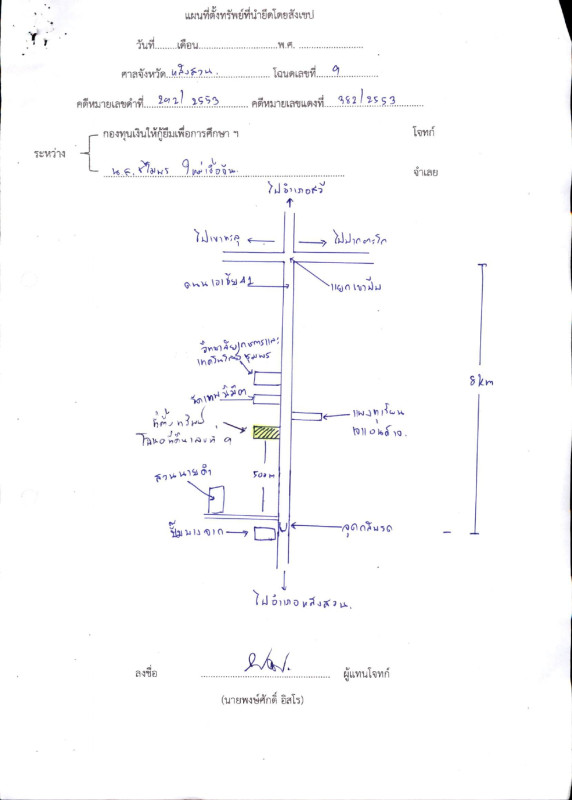 แผนที่ตั้งทรัพย์ที่นำยึดโดยสังเขป
วันที่.......เดือน...........................พ.ศ. ......................
ศาลจังหวัด หลังสวน. โฉนดเลขที่ 9
คดีหมายเลขดำที่ 202/2553 คดีหมายเลขแดงที่ 382/2553
กองทุนเงินให้กู้ยืมเพื่อการศึกษา ฯ โจทก์
ระหว่าง
น.ส. จำเลย
ไปอำเภอสวี
ไปเขาทะลุ ไปปากตะโก
ถนนเอเชีย 41 แยกเขาปีบ
วิทยาลัยเกษตรและ
เทคโนโลยีชุมพร
8 km
วัดเทพนิมิต
ที่ตั้งทรัพย์ แผงทุเรียน
โฉนดที่ดินเลขที่ 9
สวนนายดำ 500m
ปั๊มบางจาก จุดกลับรถ
ไปอำเภอหลังสวน.
ลงชื่อ ผู้แทนโจทก์
(นายพงษ์ศักดิ์ อิสโร)